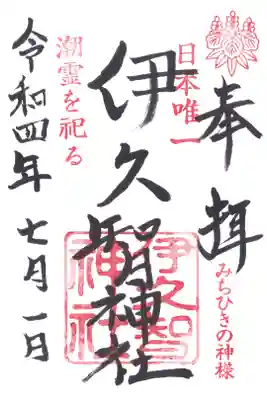 奉拝
みちひきの神様
日本唯一
伊久智神社
潮霊を祀る
令和四年 七月一日
伊久智
神社